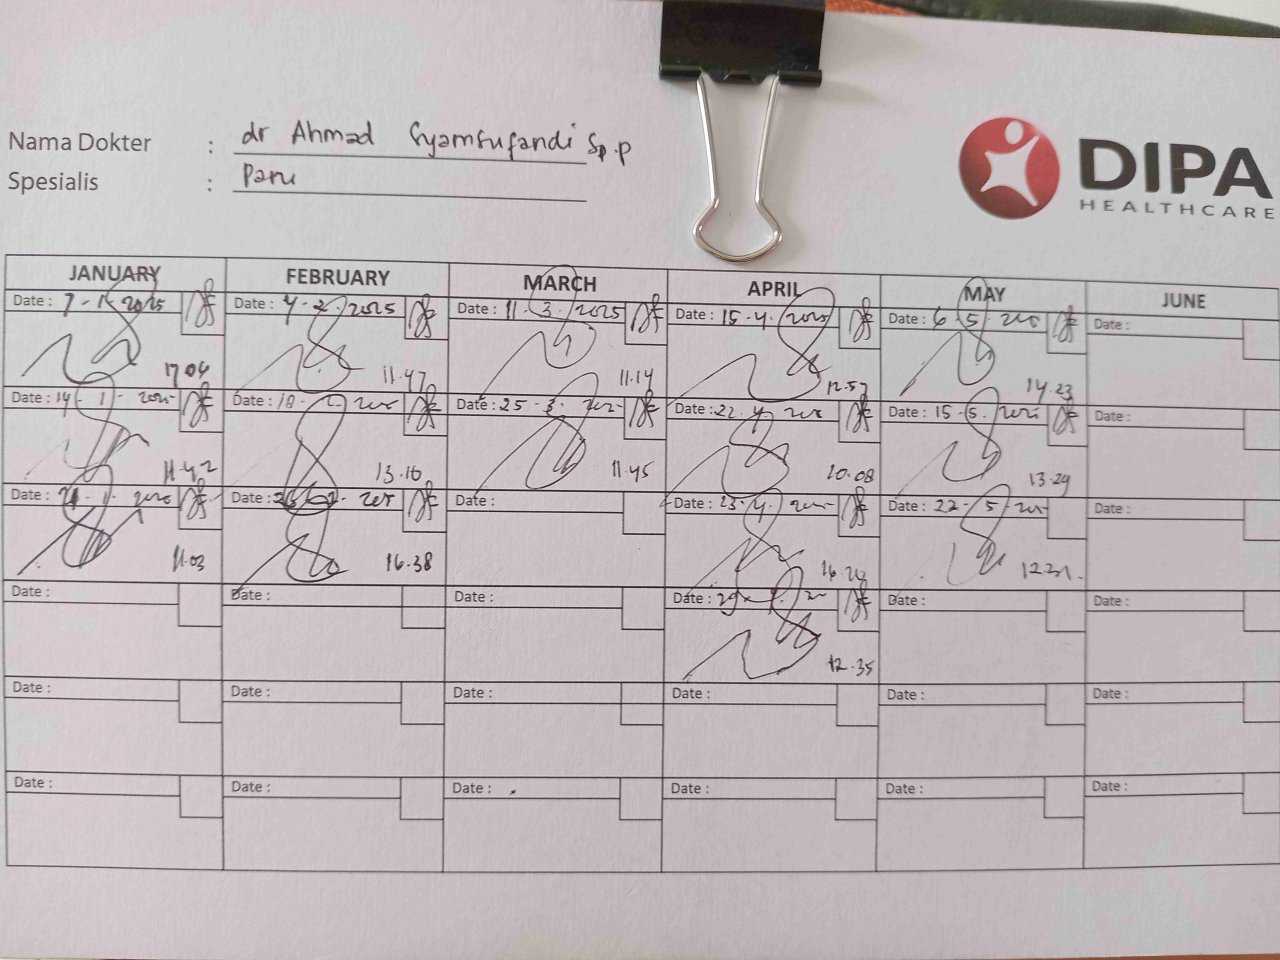 Nama Dokter : dr Ahmad Syamsufandi Sp.P
Spesialis : Paru
DIPA
HEALTHCARE
JANUARY FEBRUARY MARCH APRIL MAY JUNE
Date : 7-1-2025 Date : 4-2-2025 Date : 11-3-2025 Date : 15-4-2025 Date : 6-5 Date :
17.04 11.47 11.14 12.57 14.23
Date : 14-1-2025 Date : 18-2- Date : 25-3- Date : 22-4- Date : 15-5- Date :
11.42 13.10 11.45 10.08 13.29
Date : Date : Date : Date : 23-4- Date : 22-5- Date :
11.03 16.38
Date : Date : Date : Date : 29- Date : Date :
12.35
Date : Date : Date : Date : Date : Date :
Date : Date : Date : Date : Date : Date :